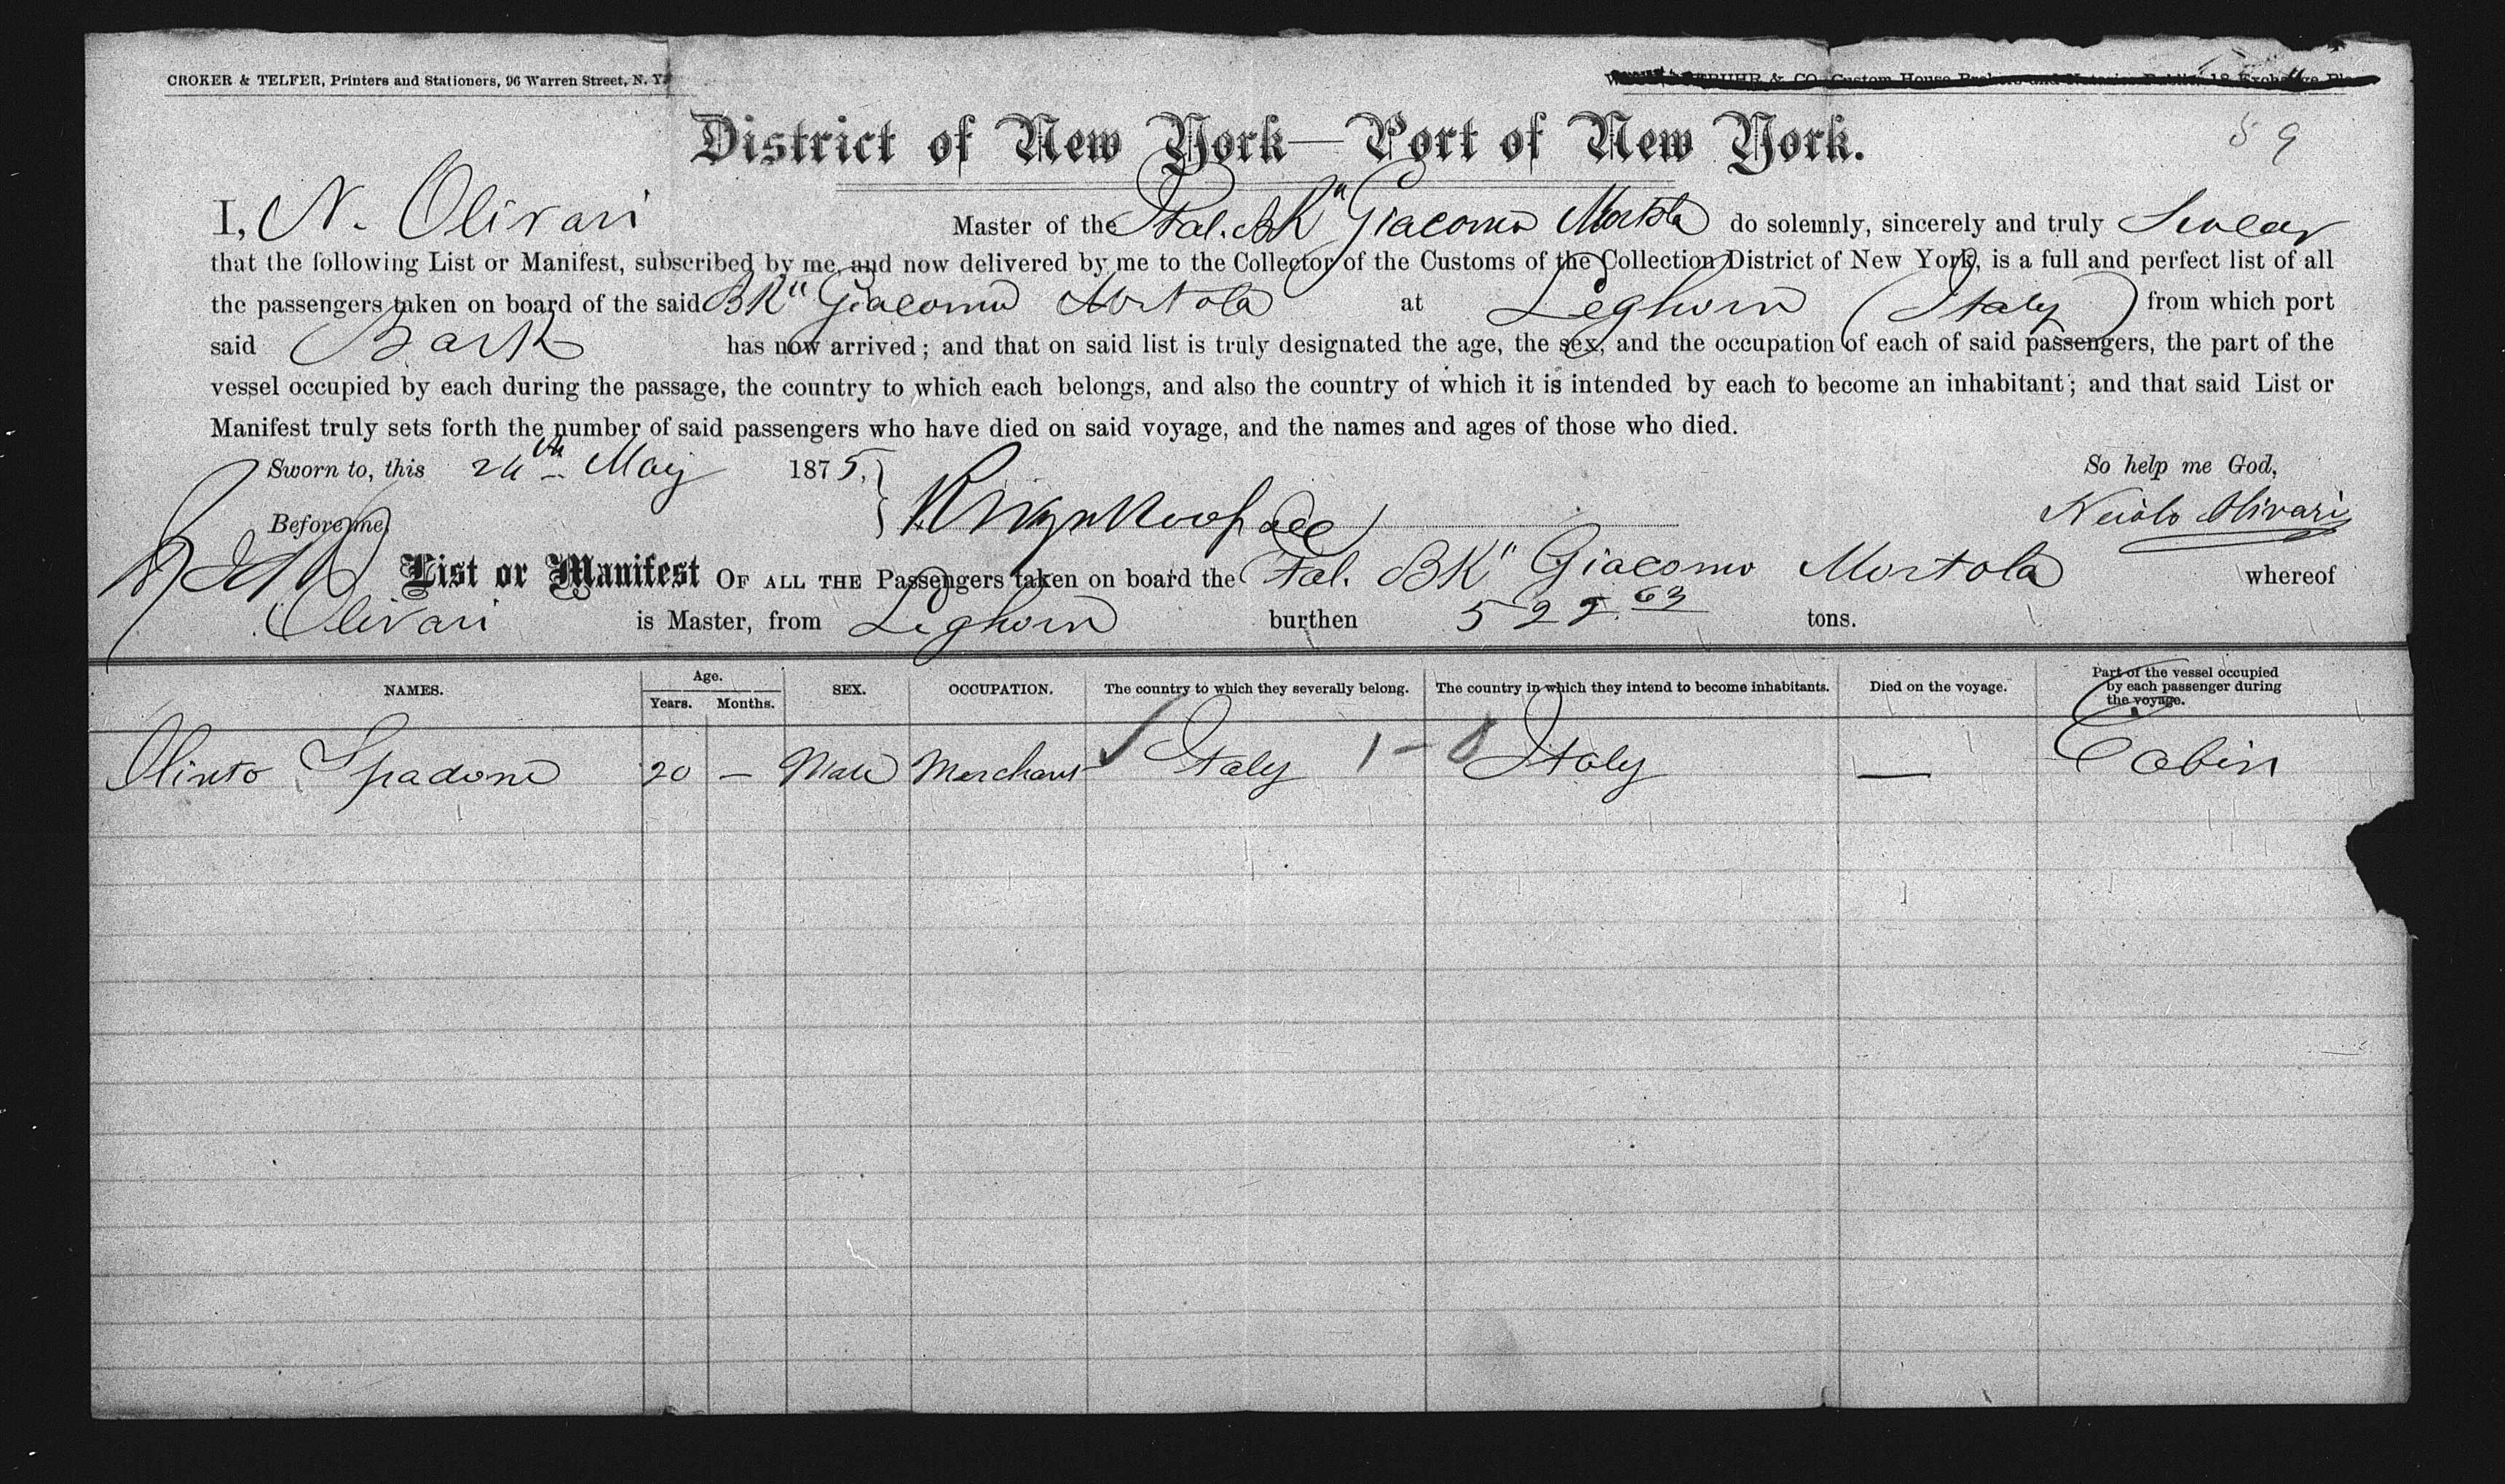 CROKER & TELFER, Printers and Stationers, 96 Warren Street, N. Y.
BUHR & CO. Custom House Brokers and Notaries Public, 18 Exchange Pla
59
District of New York—Port of New York.
I, N. Olivari Master of the Ital. Bk "Giacomo Mortola do solemnly, sincerely and truly Swear
that the following List or Manifest, subscribed by me, and now delivered by me to the Collector of the Customs of the Collection District of New York, is a full and perfect list of all
the passengers taken on board of the said Bk "Giacomo Mortola at Leghorn (Italy) from which port
said Bark has now arrived; and that on said list is truly designated the age, the sex, and the occupation of each of said passengers, the part of the
vessel occupied by each during the passage, the country to which each belongs, and also the country of which it is intended by each to become an inhabitant; and that said List or
Manifest truly sets forth the number of said passengers who have died on said voyage, and the names and ages of those who died.
Sworn to, this 24th May 1875, So help me God,
Before me, Olivari
List or Manifest OF ALL THE Passengers taken on board the Ital. Bk" Giacomo Mortola whereof
Olivari is Master, from Leghorn burthen tons.
NAMES. Age. Years. Months. SEX. OCCUPATION. The country to which they severally belong. The country in which they intend to become inhabitants. Died on the voyage. Part of the vessel occupied by each passenger during the voyage.
Olinto Spadoni 20 — Male Merchant Italy 1 - Italy — Cabin